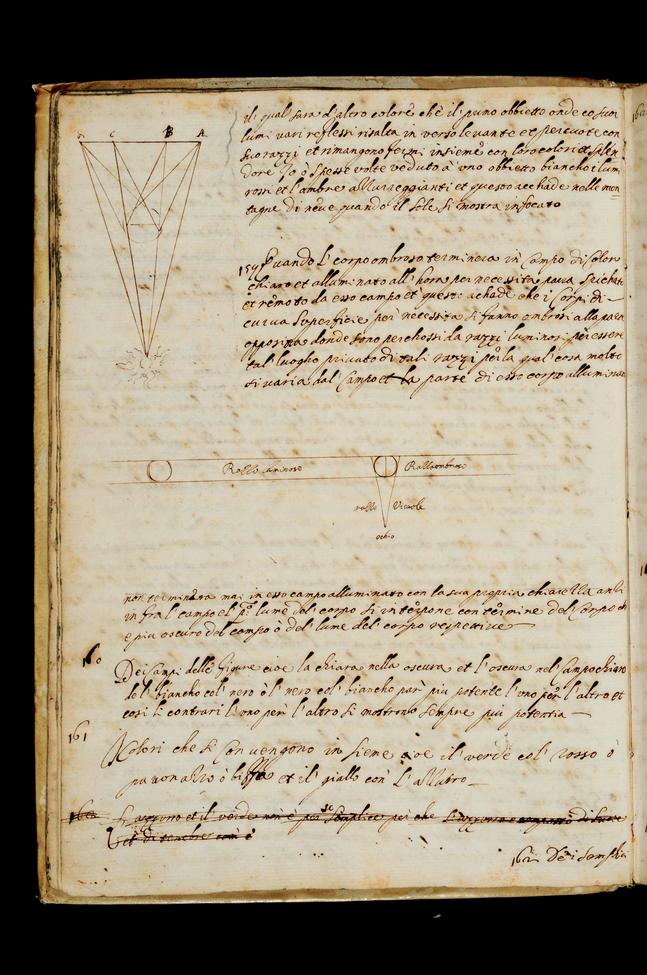 C B A
il qual sara d'altro colore che il primo obbietto onde cosuoi
lumi vari reflessi risalta in verso levante et percuote con
suo razzi et rimangono fermi insieme con loro colori et splen
dore Io ò spesse volte veduto à uno obbietto biancho i lumi
rossi et l'ambre allurreggianti et questo achade nelle mon
tagne di neve quando il sole si mostra infocato
159 Quando l'corpo ombroso terminera in campo di color
chiaro et alluminato all'hora per necessita parra
et remoto da esso campo et questo achade che i corpi di
curva superficie per necessita si fanno ombrosi alla parte
opposita donde sono perchossi da razzi luminosi per essere
tal luogho privato di tali razzi per la qual cosa molto
si varia dal campo et la parte di esso corpo alluminato
Razzo luminoso Razzo ombroso
razzo visuale
ochio
non terminera mai in esso campo alluminato con la sua propria chiarezza anzi
infra l'campo el po lume del corpo si interpone con termine del corpo ch
e piu oscuro del campo ò del lume del corpo respettive
160
De campi delle figure cioe la chiara nella oscura et l'oscura nel campo chiaro
del bianco col nero ò l'nero col biancho par piu potente l'uno per l'altro et
cosi li contrari l'uno per l'altro si mostrono sempre piu potentia
161
Colori che si convengono insieme cioe il verde col rosso ò
pavonazzo ò biffa et il giallo con l'azzuro
162 L'azzurro et il verde non è per se semplice per che l'azzurro e composto di luce
et di tenebre com è
162 De i semplici